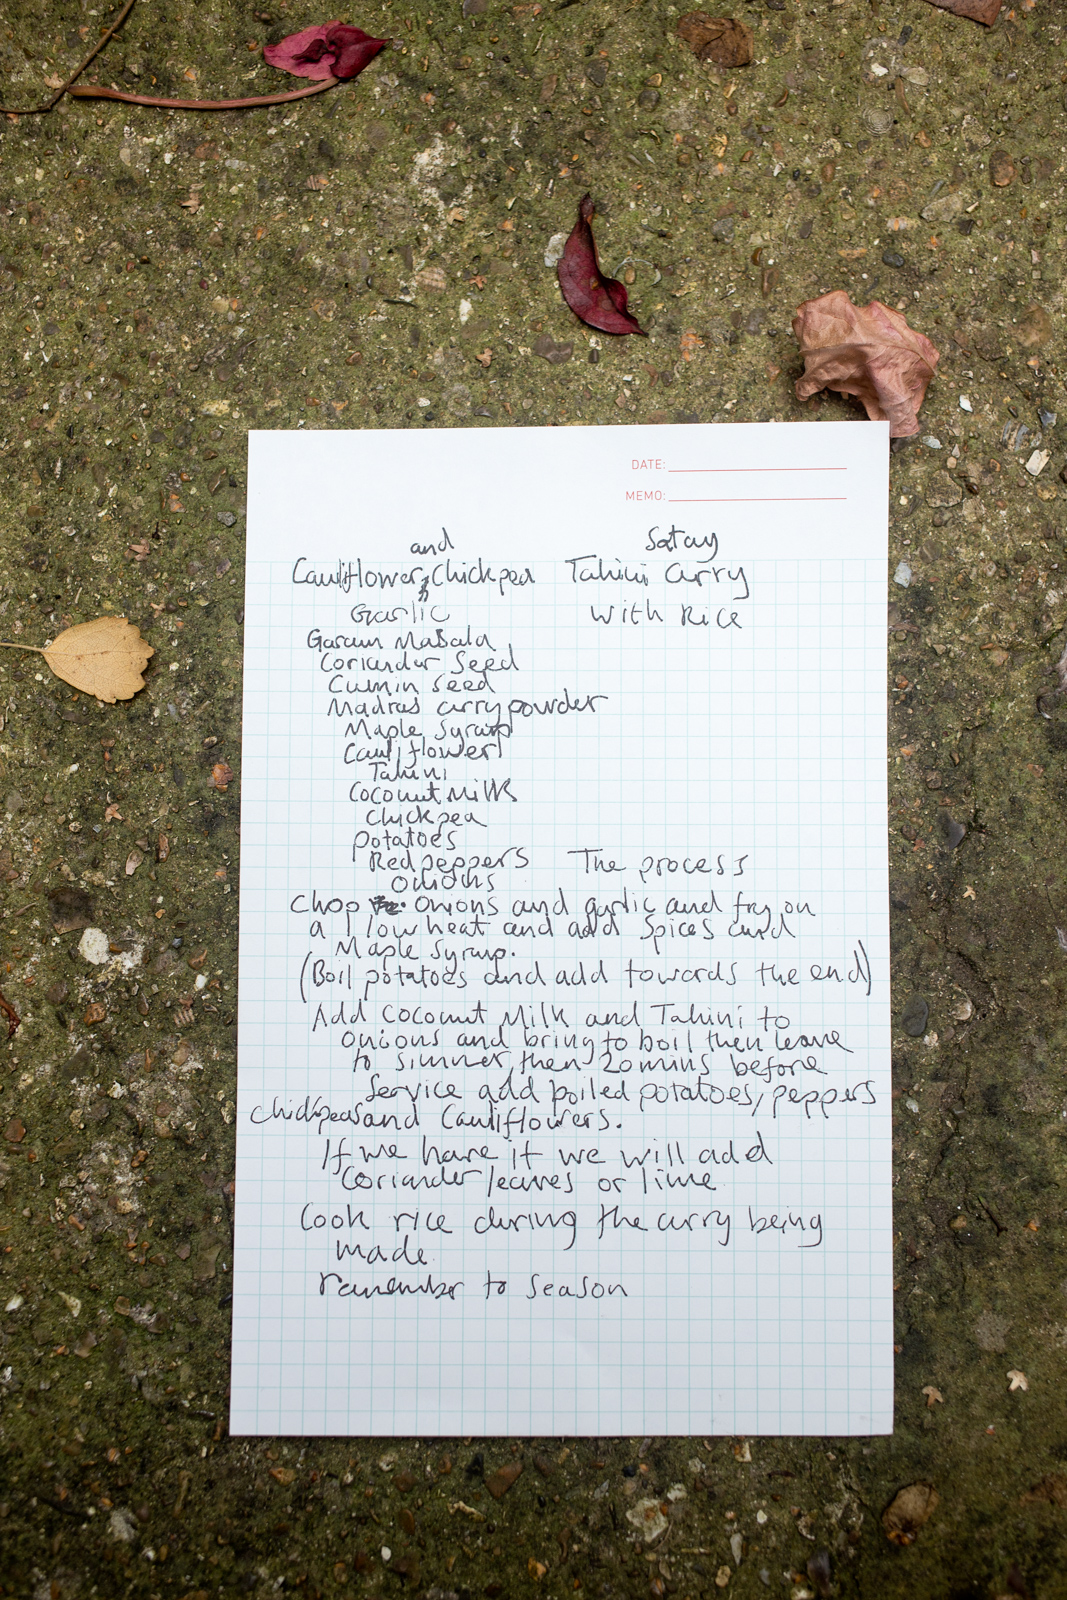 DATE:
MEMO:
and Satay
Cauliflower, Chickpea Tahini Curry
Garlic With Rice
Garam Masala
Coriander Seed
Cumin Seed
Madras curry powder
Maple Syrup
Cauliflower
Tahini
Coconut Milk
Chickpea
Potatoes
Red peppers The process
Onions
Chop onions and garlic and fry on
a low heat and add Spices and
Maple Syrup.
(Boil potatoes and add towards the end)
Add Coconut Milk and Tahini to
Onions and bring to boil then leave
to simmer, then 20mins before
Service add boiled potatoes, peppers
chickpeas and Cauliflowers.
If we have it we will add
Coriander leaves or lime
Cook rice during the curry being
made.
remember to season